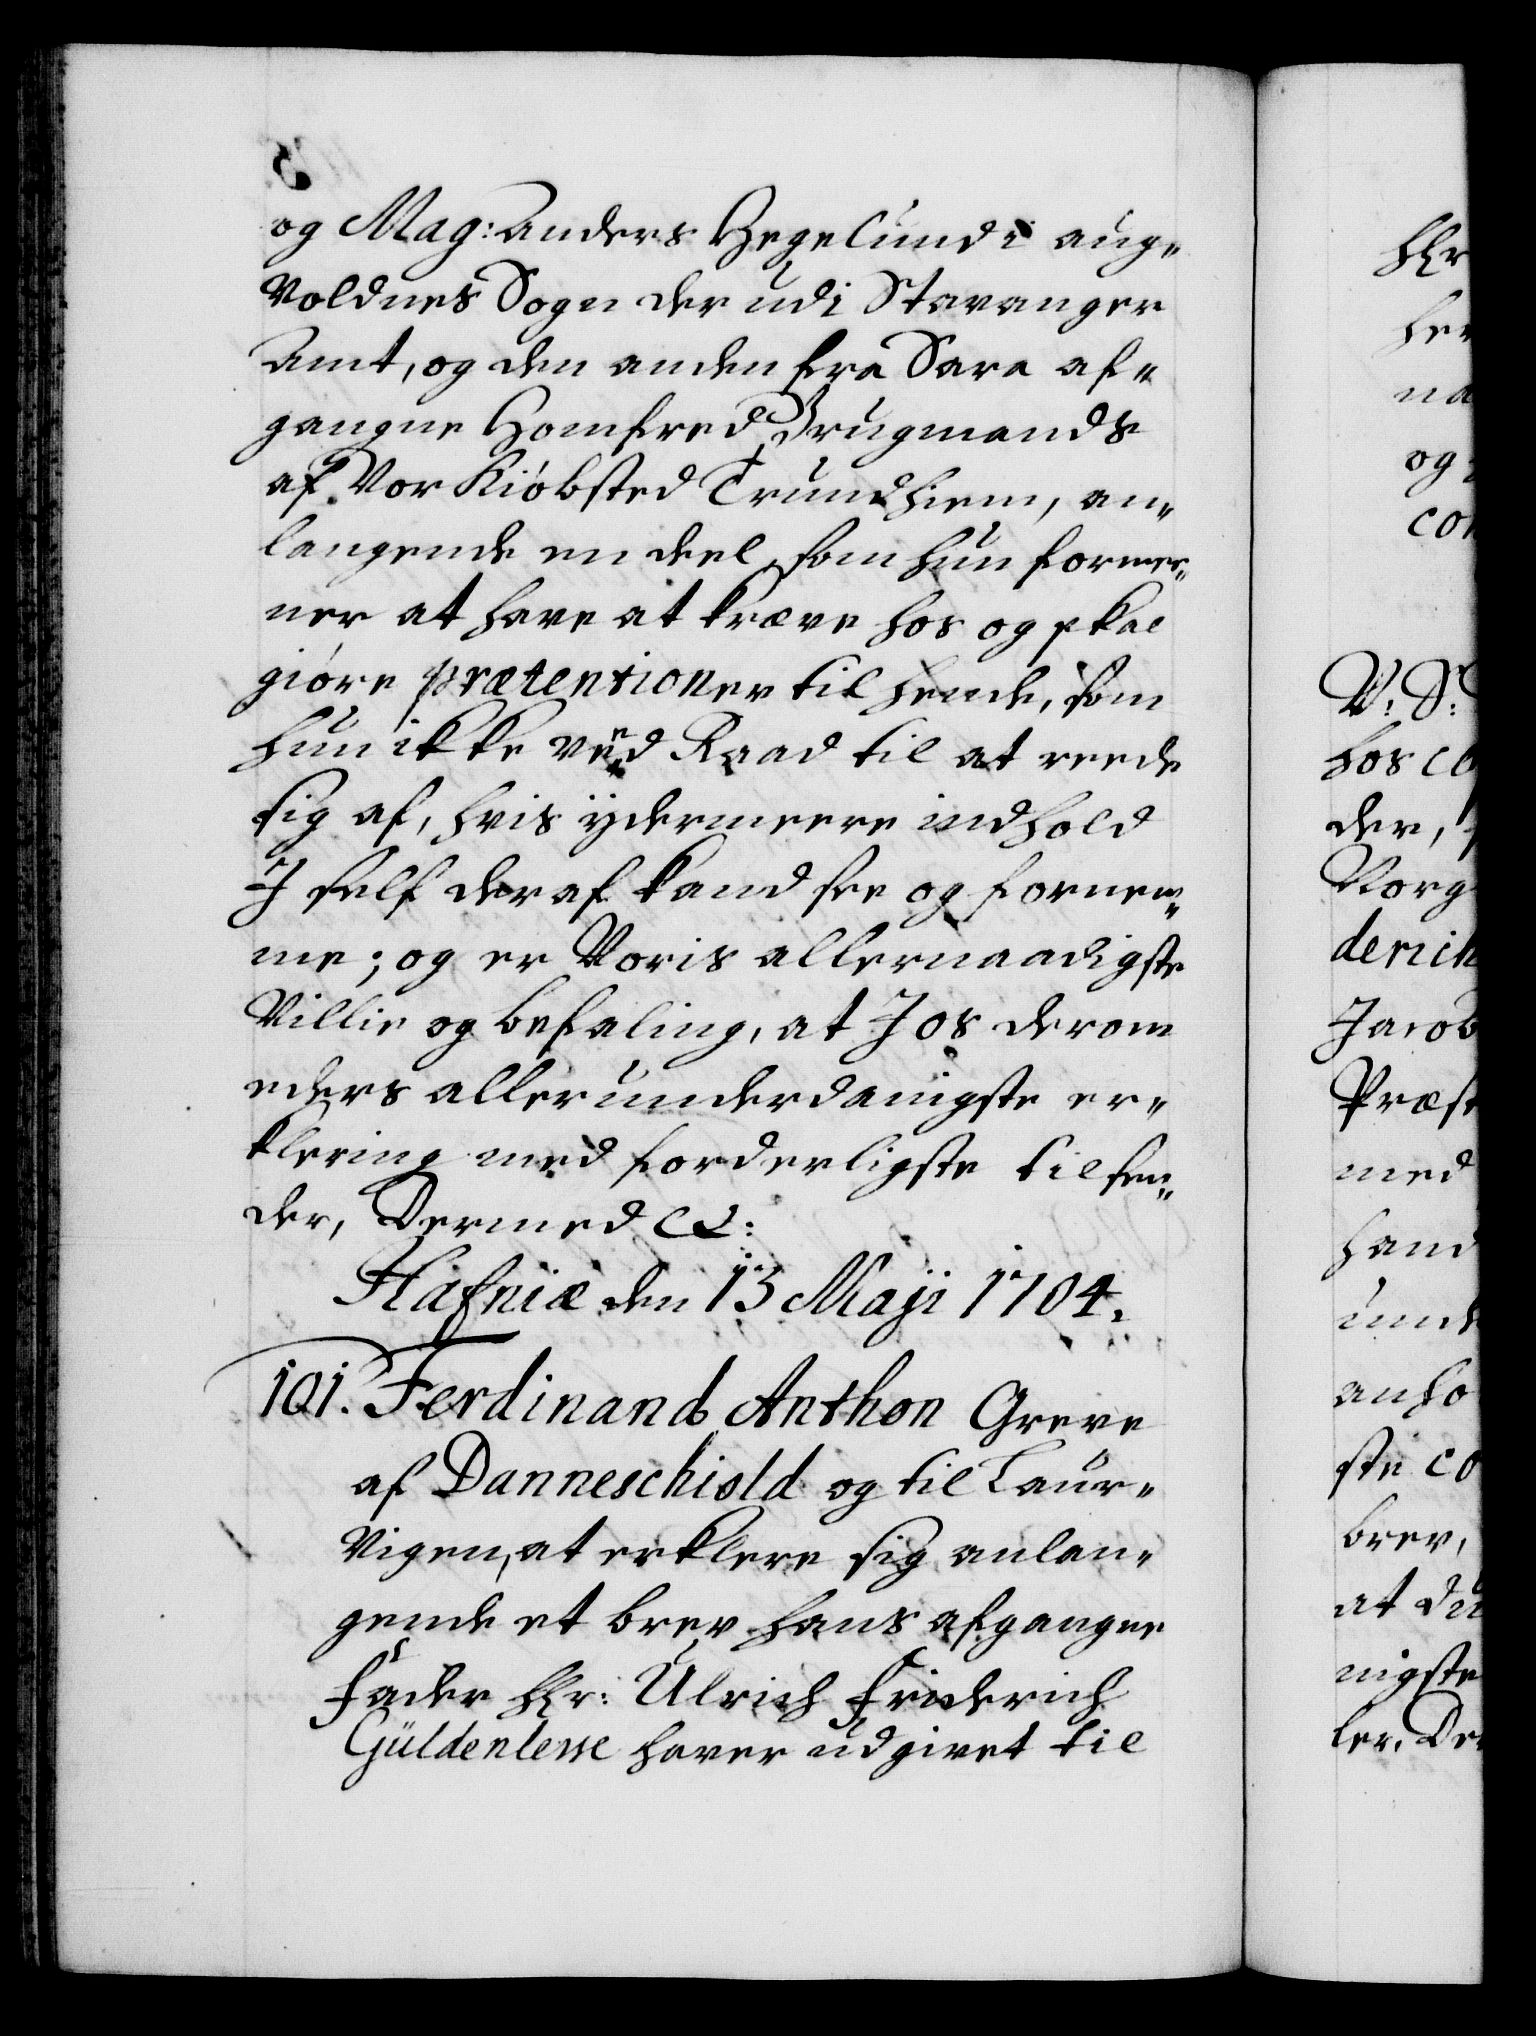 og Mag: Anders Hegelund i aug„
Voldnes Sogn der udi Stavanger
Amt, og den anden fra Sara af„
gangne Homfred Brugmands
af Vor Kiöbsted Trundhiem, an„
langende en deel, som hun formee„
ner at have at kræve hos og skal
giöre prætentioner til hende, som
hun ikke veed Raad til at reede
sig af, hvis ÿdermeere indhold
I self deraf kand see og fornem„
me; og er Voris allernaadigste
Villie og befaling, at I os derom
eders allerunderdanigste er„
klering med forderligste tilsen„
der, Dermed &:
Hafniæ den 13 Maji 1704.
101. Ferdinand Anthon Greve
af Danneschiold og til Laur„
Vigen, at erklere sig anlan„
gende et brev hans afgangne
Fader Hr: Ulrich Friderich
Güldenlewe haver udgivet til
Hr
her
na
og
con
V: S:
hos co
der,
Norg
denik
Jacob
Præs
med
hand
unde
anfo
ste co
brev,
at Du
nigste
ler, De